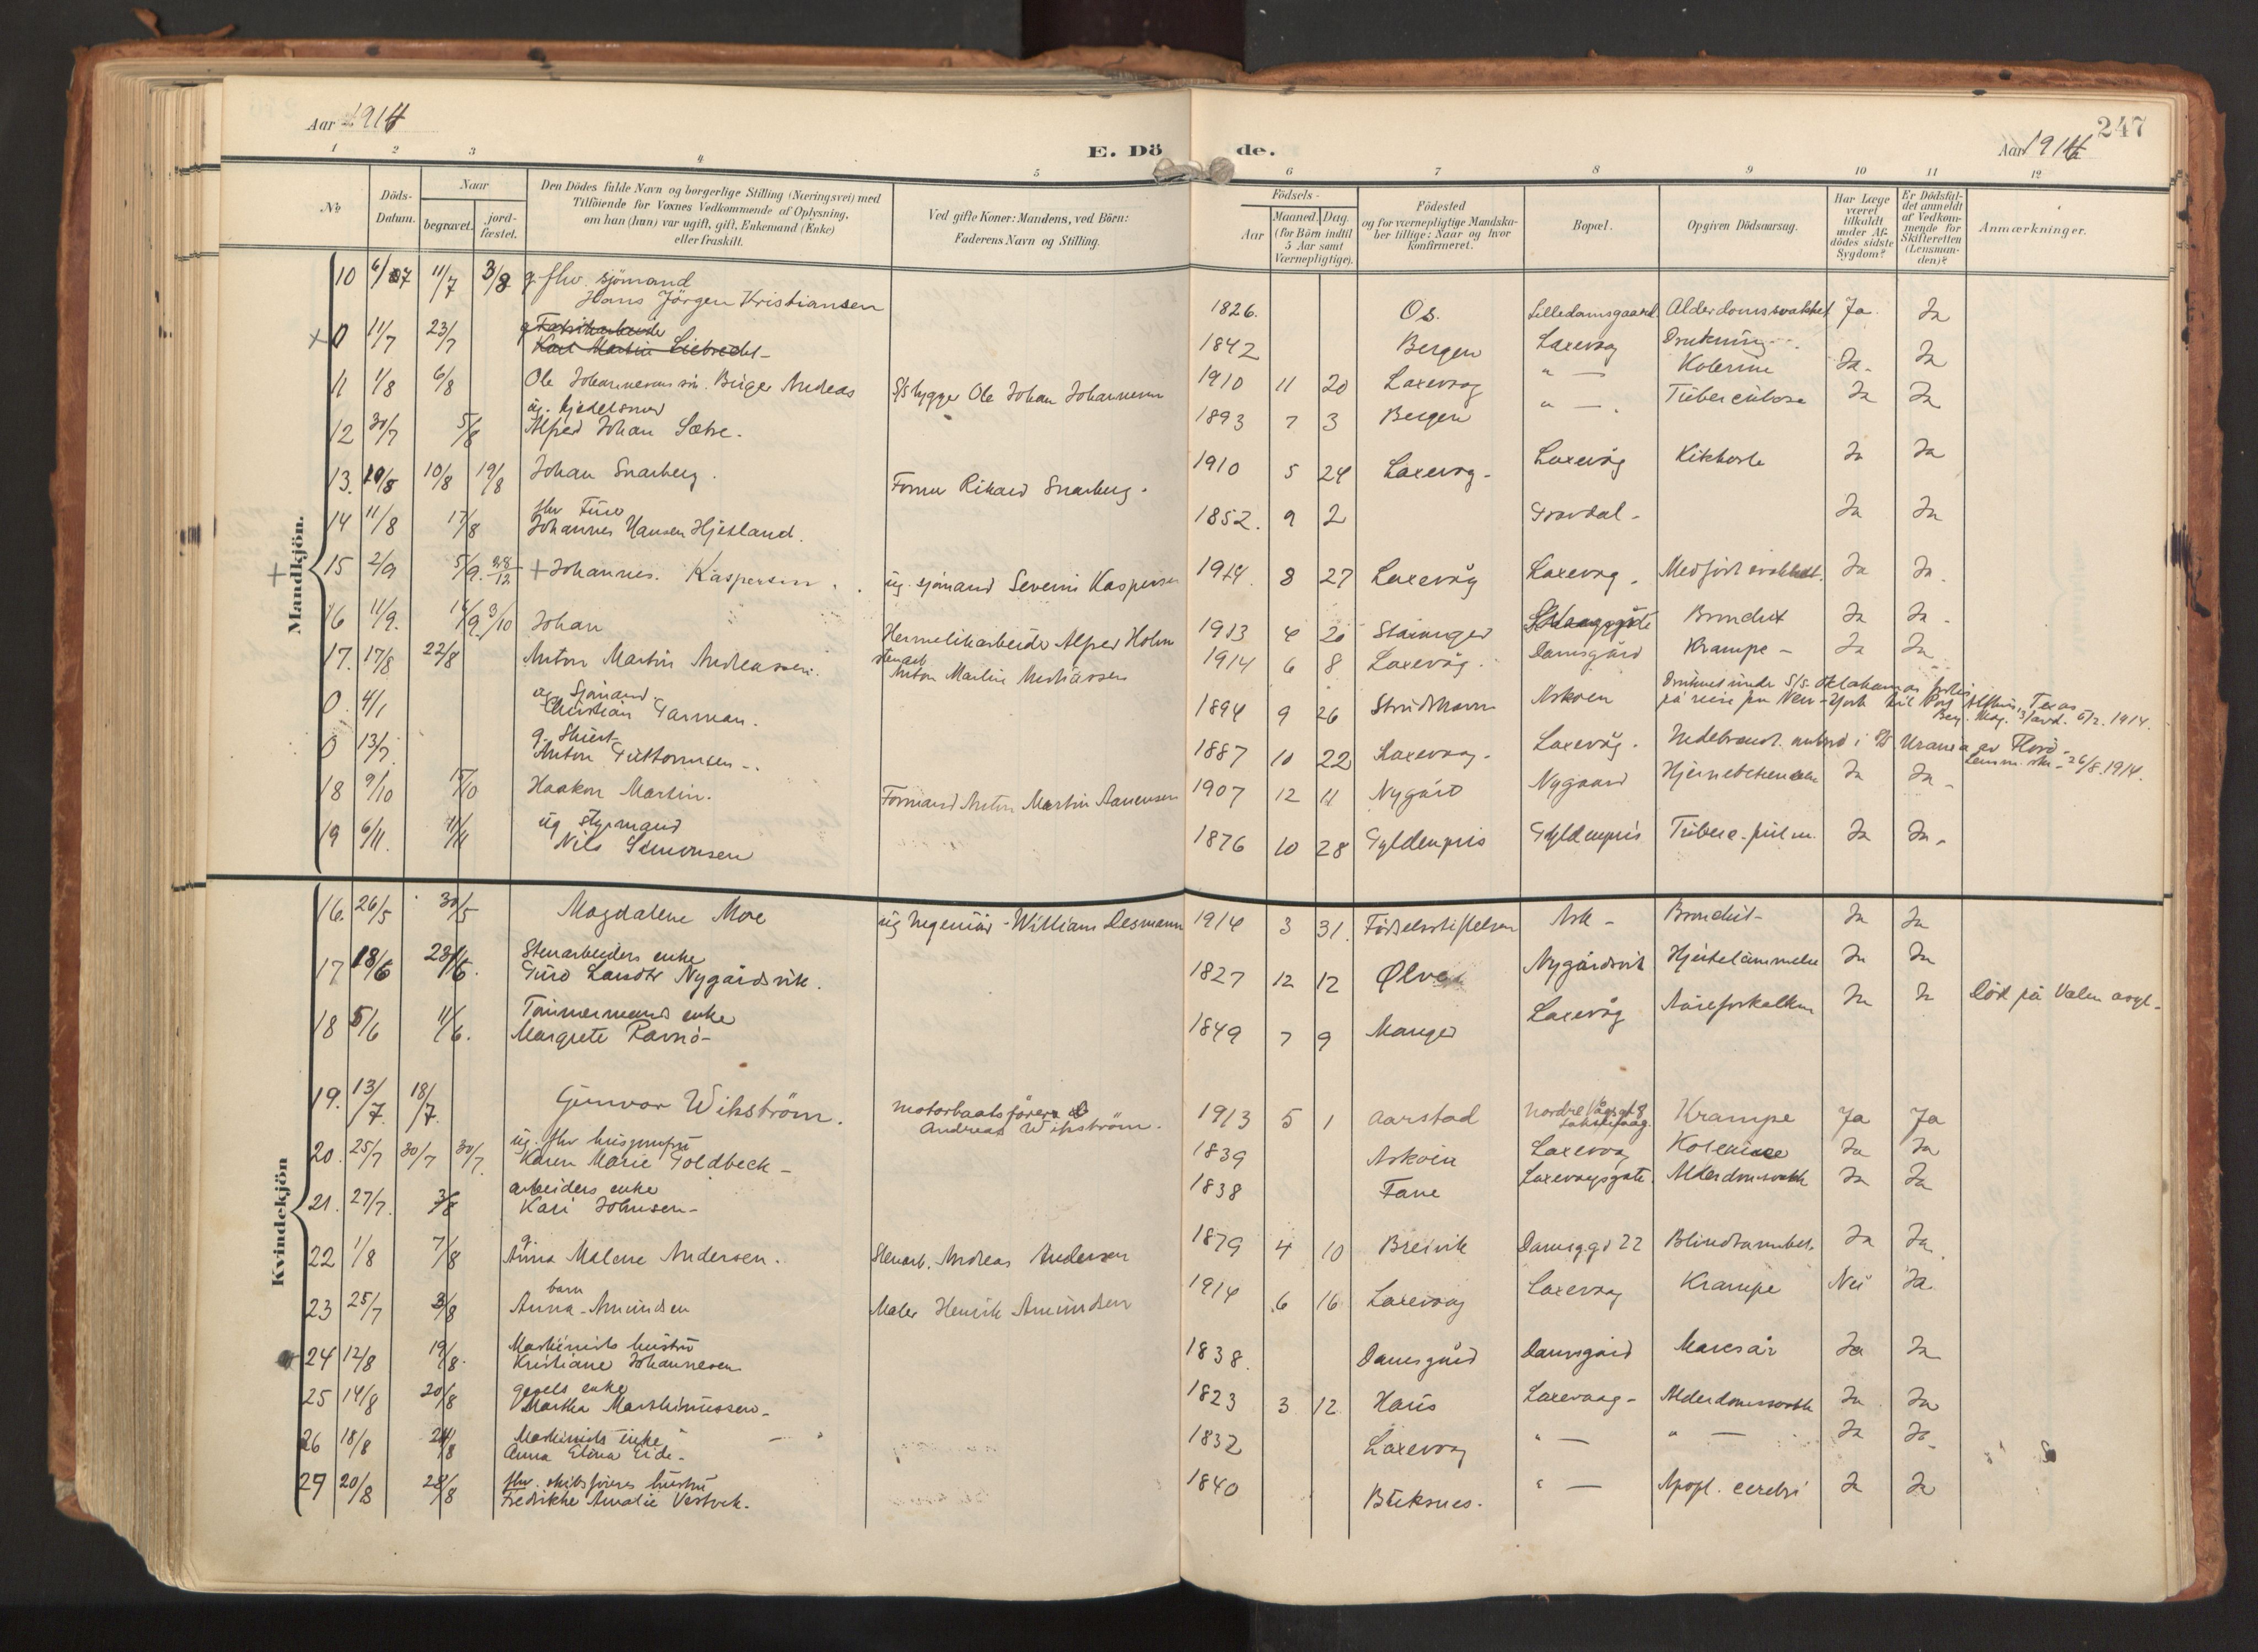 Aar 1914
E. Döde.
Aar 1914
247
1 2 3 4 5 6 7 8 9 10 11 12
№
Döds-Datum.
Naar
begravet. jord-fæstet.
Den Dödes fulde Navn og borgerlige Stilling (Næringsvei) med
Tilföiende for Voxnes Vedkommende af Oplysning,
om han (hun) var ugift, gift, Enkemand (Enke)
eller fraskilt.
Ved gifte Koner: Mandens, ved Börn:
Faderens Navn og Stilling.
Födsels-
Aar
Maaned. Dag.
(for Börn indtil
5 Aar samt
Værnepligtige).
Födested
og for værnepligtige Mandska-
ber tillige: Naar og hvor
konfirmeret.
Bopæl.
Opgiven Dödsaarsag.
Har Læge
været
tilkaldt
under Af-
dödes sidste
Sygdom?
Er Dödsfal-
det anmeldt
af Vedkom-
mende for
Skifteretten
(Lensman-
den)?
Anmærkninger.
Mandkjön.
10 6/7 11/7 3/8 g. fhv. sjömand
Hans Jörgen Kristiansen 1826. Os. Lilledamsgaard Alderdomssvakhet Ja Ja
0 11/7 23/7 g Fabrikarbeider
Karl Martin Liebrecht 1842 Bergen Laxevaag Drukning Ja
11 1/8 6/8 Ole Johannesens sön. Birger Andreas S/Sbygger Ole Johan Johannesen 1910 11 20 Laxevaag " — Kolerine Ja Ja
12 30/7 5/8 ug. kjedelsmed
Alfred Johan Sætre. 1893 7 3 Bergen " — Tuberculose Ja Ja
13. 10/8 19/8 Johan Snarberg. Former Rikard Snarberg. 1910 5 24 Laxevaag Laxevåg Kikhoste Ja Ja
14 11/8 17/8 fhv
Johannes Hansen Hjetland. 1852. 9 2 Ja Ja
15 2/9 5/9. 28/12 + Johannes. Kaspersen. ug. sjömand Severin Kaspersen 1914. 8 27 Laxevåg Laxevaag. Medfört svakhet. Ja Ja
16 11/9. 14/9. 3/10 Johan Hermetikarbeider Alfred Holm 1913 4 20 Stavanger Bronchit Ja Ja
17. 17/8 22/8 Anton Martin Andreassen. stenarb
Anton Martin Andreassen 1914 6 8 Laxevåg. Damsgård Krampe Ja Ja
0. 4/1 ug. Sjömand.
Christian Farman. 1894 9 26 Strudshavn Askøen Druknet under S/S. Oklahomas forlis
på reise fra New-York til Port Arthur, Texas
Berg. Mag. 3/avd. 5/2. 1914.
0 13/7. g.
Anton Guttormsen 1887 10 22 Laxevaag. Laxevåg. Indebrændt ombord i Urania av Florö
Lensm. 26/8.1914.
18 9/10 15/10 Haakon Martin. Formand Anton Martin Aanensen 1907 12 11 Nygård Nygaard Hjernebetændelse Ja Ja
19 6/11. 11/11 ug styrmand
Nils Simonsen 1876 10 28 Gyldenpris Gyldenpris Tuberc. pulm. Ja Ja
Kvindekjön
16. 26/5 30/5 Magdalene Moe ug Ingeniör William Lesmann 1914 3 31. Födselsstiftelsen Ask Bronchit Ja Ja
17 18/6 23/6. Stenarbeiders enke
Guro Larsdtr Nygårdsvik. 1827 12 12 Ølve Nygårdsvik Hjertelammelse Ja Ja
18 5/6 11/6. Tömmermands enke
Margrete Ravnö 1849 7 9 Manger Laxevåg Åreforkalkn Ja Ja Död på Valen asyl.
19. 13/7. 18/7. Gunvor Wikström. motorbaatsförer
Andreas Wikström. 1913 5 1 Aarstad Nordre Vågsgt 8
Laksevaag. Krampe Ja Ja
20. 25/7 30/7 30/7. ug. fhv husjomfru
Karen Marie Goldbeck 1839 Askøen Laxevaag Kolerine Ja Ja
21. 27/7. 3/8 arbeiders enke
Kari Johnsen 1838 Fane Laxevaagsgate. Alderdomssvakh Ja Ja
22 1/8 7/8 g.
Anna Malene Andersen. Stenarb. Andreas Andersen 1879 4 10 Breivik Damsg.gt 22 Blindtarmbet. Ja Ja
23 25/7 3/8 barn
Anna Amundsen Maler Henrik Amundsen 1914 6 16 Laxevaag Laxevaag Krampe Nei Ja.
24 12/8 19/8. Maskinists hustru
Kristiane Johannesen 1838. Damsgård Damsgård Mavesår Ja Ja
25 14/8 20/8 enke
Martha Marthinussen 1823 3 12 Haus Laxevaag Alderdomssvakh Ja Ja
26 18/8 24/8 Maskinists enke
Anna Elina Eide. 1832 Laxevaag " — " — Ja Ja
27 20/8 28/8 fhv. skibsföreres hustru
Fredrikke Amalie Vestvik. 1840 Buksnes. " — Apopl. cerebri Ja Ja